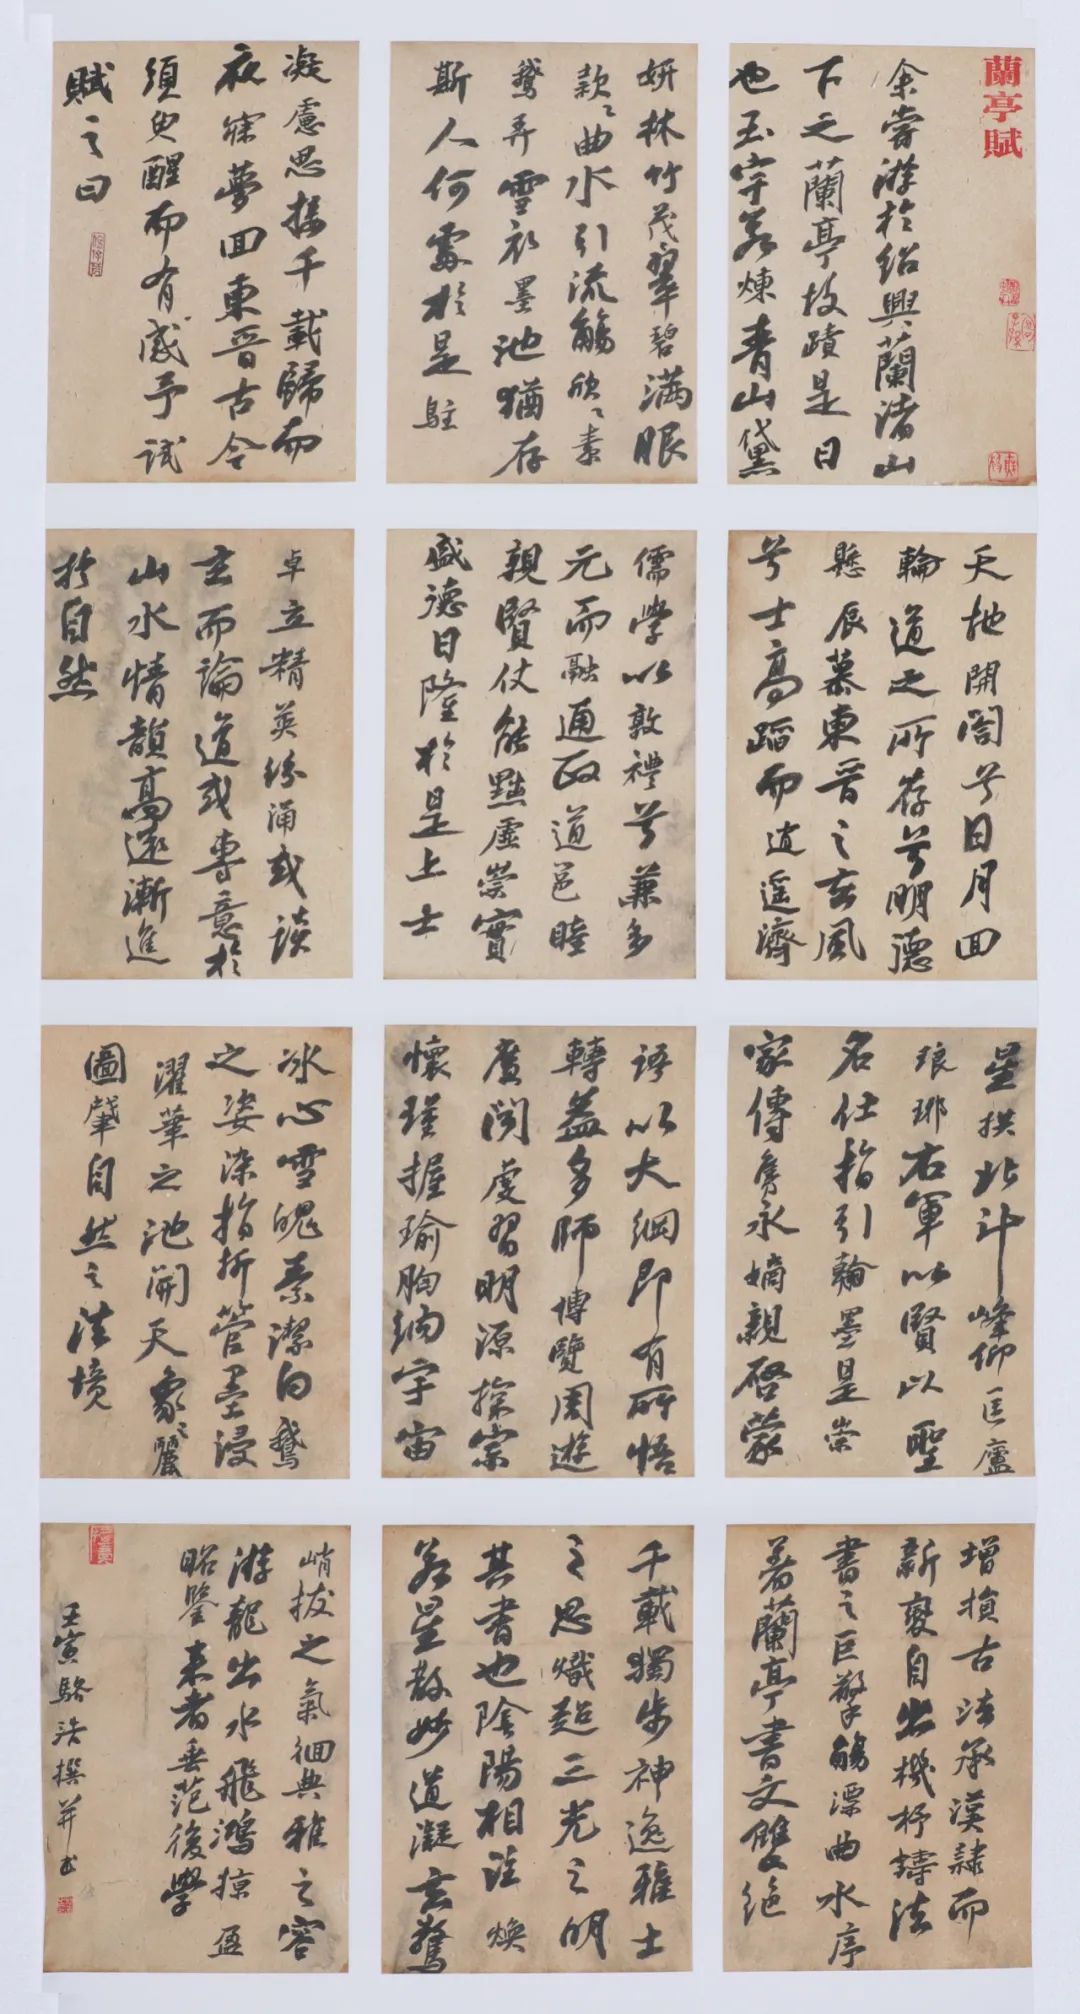 蘭亭賦
余嘗游於紹興蘭渚山
下之蘭亭故蹟是日
也玉宇若煉青山黛
妍林竹茂翠碧滿眼
款款曲水引流觴欣欣素
鵝弄雪衣墨池猶存
斯人何處於是駐
凝慮思接千載歸而
夜寐夢回東晉古今
須臾醒而有感予試
賦之曰
天地開闔兮日月回
輪道之所存兮明德
懸辰慕東晉之玄風
兮士高蹈而逍遥濟
儒學以敦禮兮兼多
元而融通政道邕睦
親賢仗能黜虛崇實
盛德日隆於是上士
卓立精英紛涌或談
玄而論道或專意於
山水情韻高遠漸進
於自然
星拱北斗峰仰匡廬
琅琊右軍以賢以聖
名仕指引翰墨是崇
家傳雋永嫡親啓蒙
語以大綱即有所悟
轉益多師博覽周遊
廣閱虔習明源探索
懷瑾握瑜胸納宇宙
冰心雪魄素潔白鵝
之姿染指折管墨浸
濯華之池開天象之麗
圖肇自然之法境
增損古法承漢隸而
新變自出機杼鑄法
書之巨擘觴漂曲水序
著蘭亭書文雙絶
千載獨步神逸雅士
之思熾超三光之明
其書也陰陽相詮煥
若星散妙道凝玄驚
峭拔之氣徊典雅之容
游龍出水飛鴻掠
昭鑒來者垂范後學
壬寅駱浩撰并書